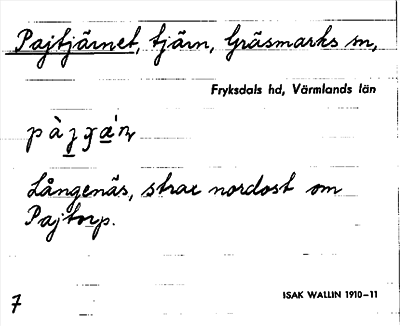 Pajtjärnet, tjärn, Gräsmarks sn,
Fryksdals hd, Värmlands län
Långenäs, strax nordost om
Pajtorp.
7
ISAK WALLIN 1910–11